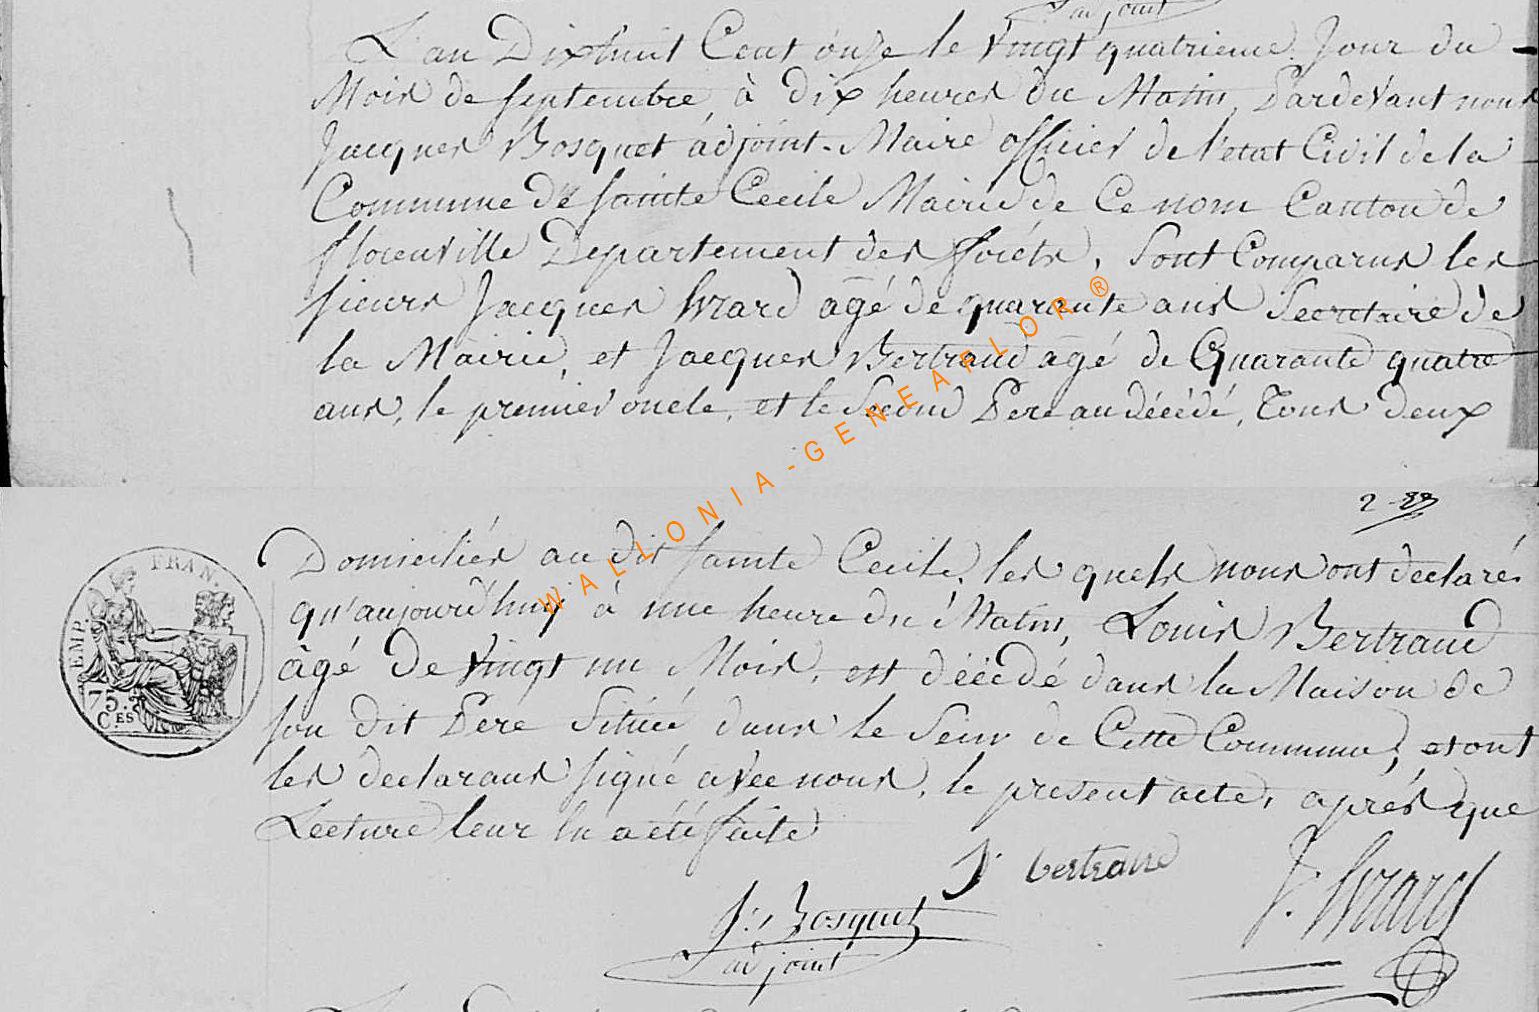 adjoint
L'an Dixhuit Cent onze le vingt quatrieme Jour du
Mois de septembre à dix heures du Matin, Pardevant nous
Jacques Bosquet adjoint-Maire officier de l'etat Civil de la
Commune de sainte Cecile Mairie de Ce nom Canton de
florenville Departement des foréts, Sont Comparus les
sieurs Jacques Evrard agé de quarante ans Secretaire de
la Mairie, et Jacques Bertrand agé de Quarante quatre
ans, le premier oncle, et le Second Pere au décédé, Tous deux
2
Domiciliés au dit sainte Cecile, les quels nous ont declarés
qu'aujourd'huy à une heure du Matin, Louis Bertrand
âgé de vingt un Mois, est décédé dans la Maison de
son dit Pere Située dans le Sein de Cette Commune, et ont
les declarans signé avec nous, le present acte, aprés que
Lecture leur en a été faite
J. bertrand
J. Evrard
J: Bosquet
adjoint
TIMP. FRAN.
75.
CES
WALLONIA-GENEAFLOR®